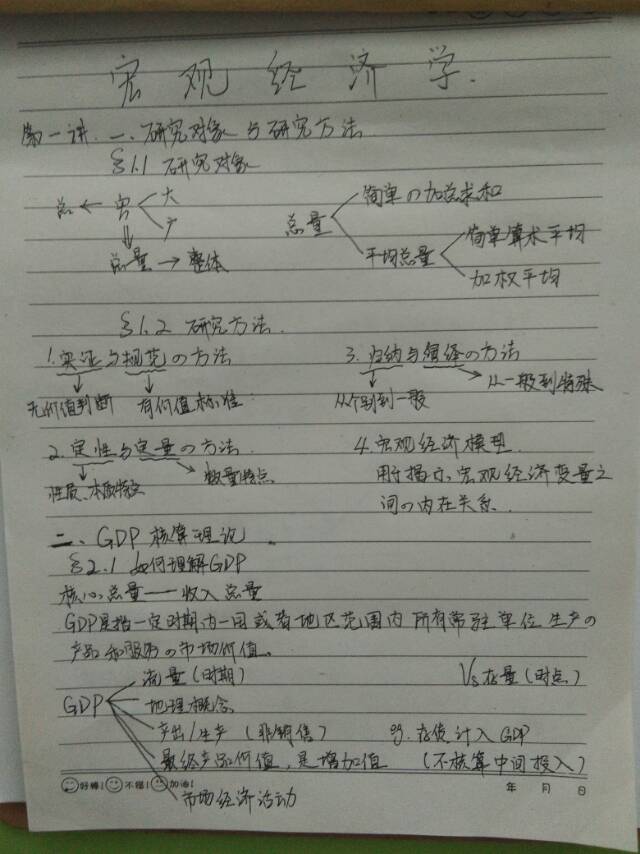 宏观经济学.
第一讲. 一、研究对象与研究方法
§1.1 研究对象
总 ← 宏 大 广
⇓
总量 → 整体
总量
简单の加总求和
平均总量
简单算术平均
加权平均
§1.2 研究方法.
1. 实证与规范の方法
无价值判断 有价值标准
2. 定性与定量の方法.
性质、本质特征 数量特点
3. 归纳与演绎の方法
从个别到一般 从一般到特殊
4. 宏观经济模型.
用于揭示宏观经济变量之
间の内在关系.
二、GDP 核算理论.
§2.1 如何理解GDP
核心总量——收入总量
GDP是指一定时期内一国或者地区范围内所有常驻单位生产の
产品和服务の市场价值。
GDP
流量(时期) Vs 存量(时点)
地理概念
产出/生产 (非销售) eg. 存货计入GDP
最终产品价值,是增加值 (不核算中间投入)
市场经济活动
好棒! 不错! 加油!
年 月 日